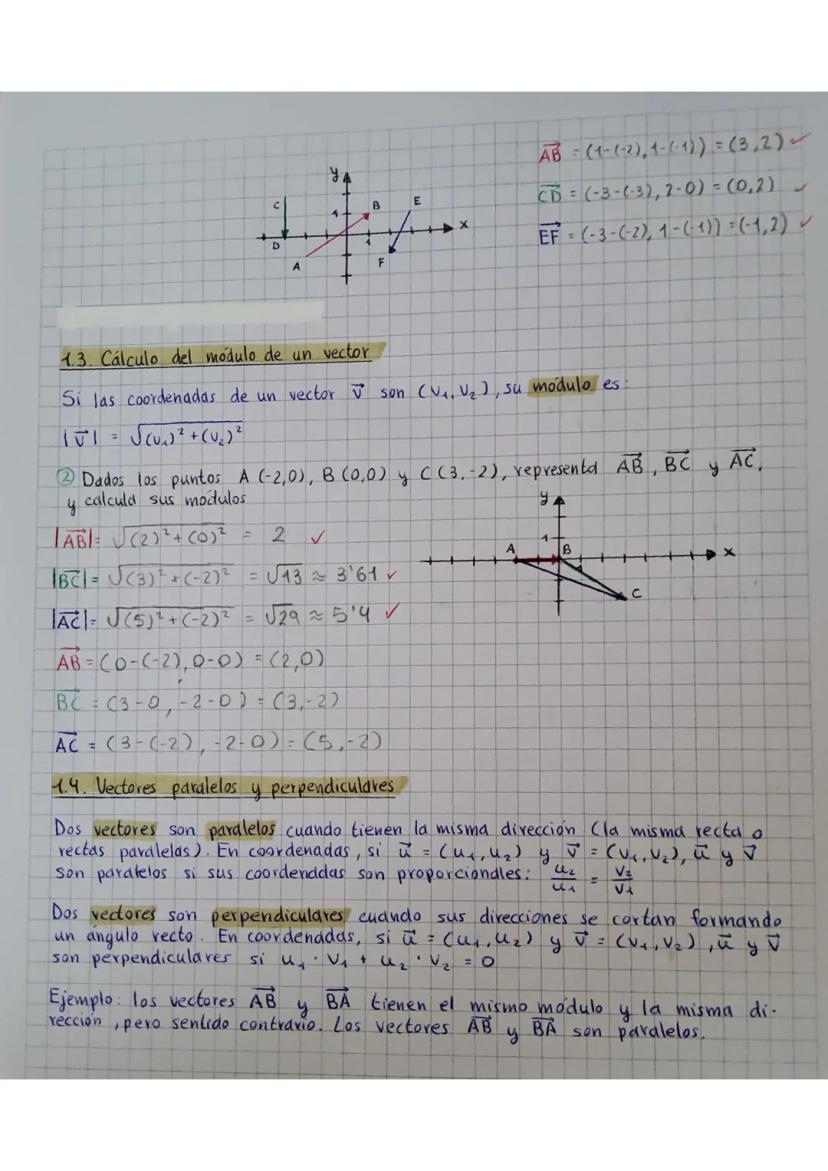 AB = (1-(-2), 1-(-1)) = (3,2) ✓
CD = (-3-(-3), 2-0) = (0,2) ✓
EF = (-3-(-2), 1-(-1)) = (-1,2) ✓
y
C
1
B
E
x
D
1
A
F
1.3. Cálculo del módulo de un vector
Si las coordenadas de un vector v⃗ son (V₁, V₂), su módulo es:
|v⃗| = √(V₁)² + (V₂)²
② Dados los puntos A (-2,0), B (0,0) y C (3,-2), representa AB, BC y AC,
y calcula sus módulos
|AB| = √(2)² + (0)² = 2 ✓
|BC| = √(3)² + (-2)² = √13 ≈ 3'61 ✓
|AC| = √(5)² + (-2)² = √29 ≈ 5'4 ✓
y
1
A
B
x
C
AB = (0-(-2), 0-0) = (2,0)
BC = (3-0, -2-0) = (3,-2)
AC = (3-(-2), -2-0) = (5,-2)
1.4. Vectores paralelos y perpendiculares
Dos vectores son paralelos cuando tienen la misma dirección (la misma recta o
rectas paralelas). En coordenadas, si u⃗ = (u₁, u₂) y v⃗ = (V₁, V₂), u⃗ y v⃗
son paralelos si sus coordenadas son proporcionales: u₂/u₁ = V₂/V₁
Dos vectores son perpendiculares cuando sus direcciones se cortan formando
un ángulo recto. En coordenadas, si u⃗ = (u₁, u₂) y v⃗ = (V₁, V₂), u⃗ y v⃗
son perpendiculares si u₁ · V₁ + u₂ · V₂ = 0
Ejemplo: los vectores AB y BA tienen el mismo módulo y la misma di-
rección, pero sentido contrario. Los vectores AB y BA son paralelos.